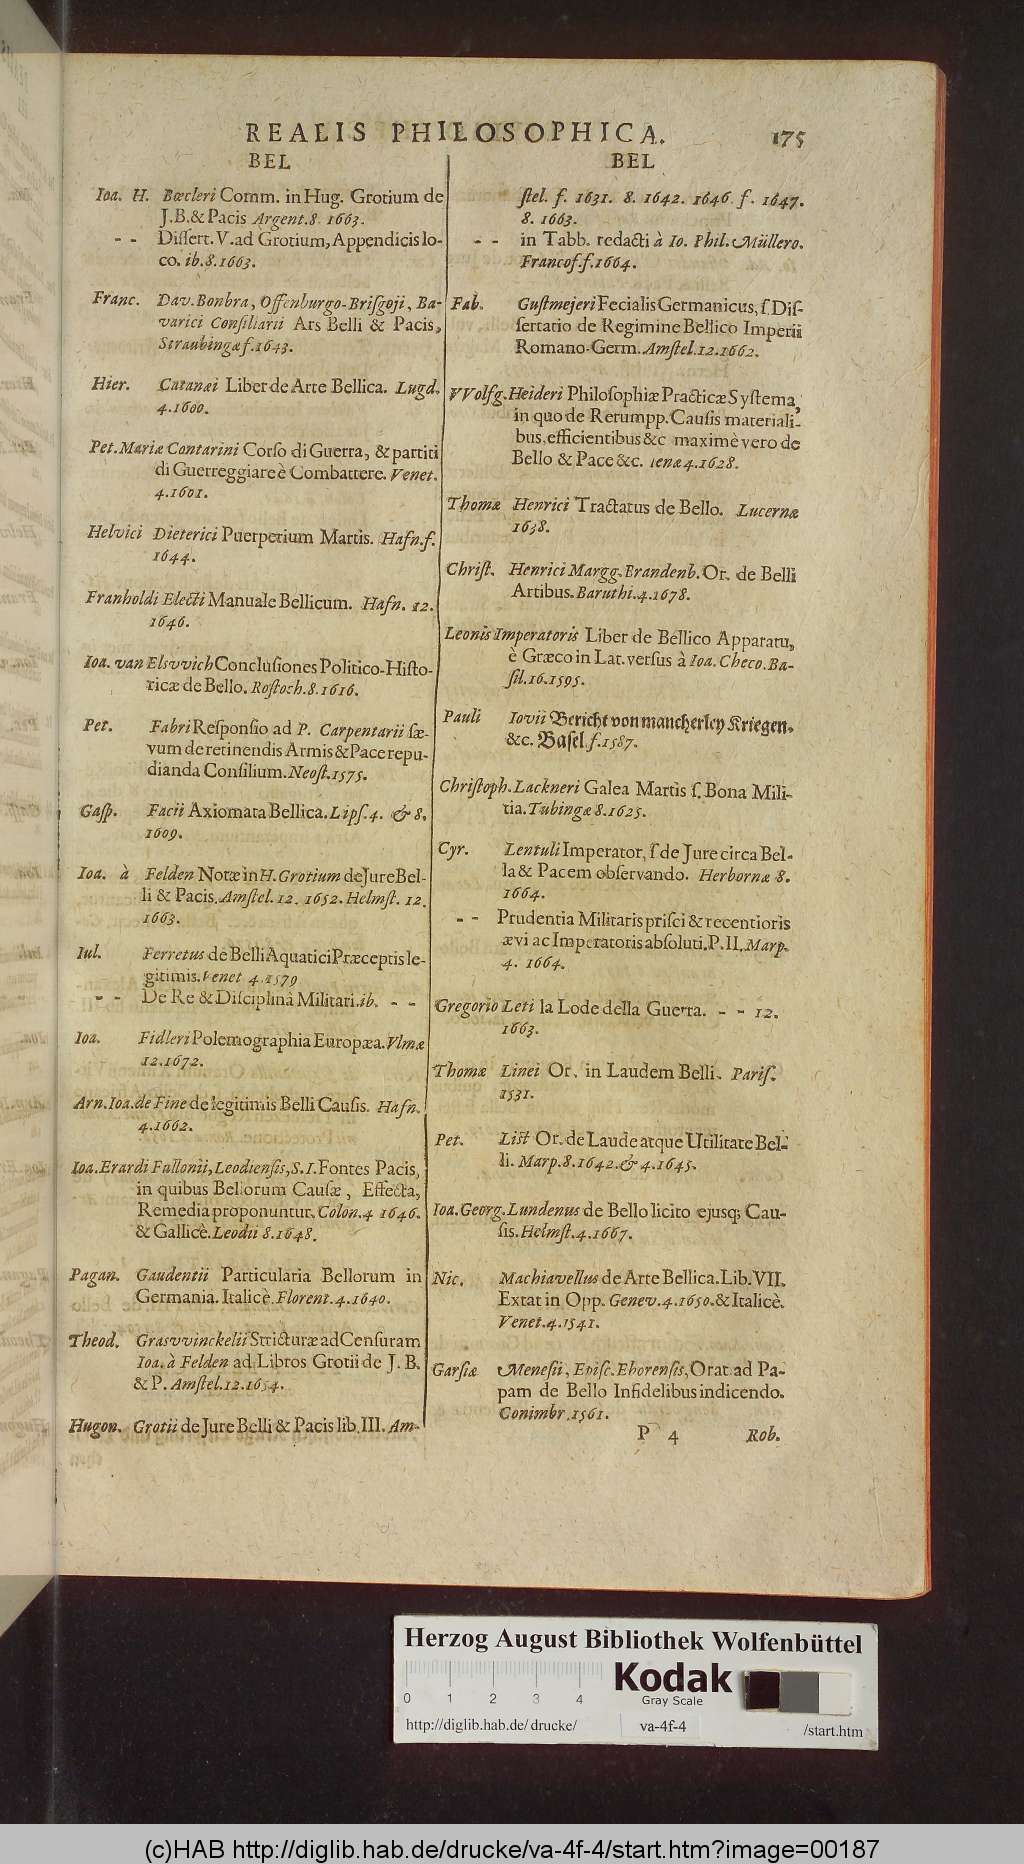 REALIS PHILOSOPHICA. 175
BEL
Ioa. H. Bœcleri Comm. in Hug. Grotium de
J.B.& Pacis Argent.8. 1663.
- - Dissert. V. ad Grotium, Appendicis lo-
co. ib.8.1663.
Franc. Dav. Bonbra, Offenburgo-Brisgoji, Ba-
varici Consiliarii Ars Belli & Pacis,
Straubingæ f.1643.
Hier. Catanæi Liber de Arte Bellica. Lugd.
4.1600.
Pet. Mariæ Contarini Corso di Guerra, & partiti
di Guerreggiare è Combattere. Venet.
4.1601.
Helvici Dieterici Puerperium Martis. Hafn.f.
1644.
Franholdi Electi Manuale Bellicum. Hafn. 12.
1646.
Ioa. van Elsvvich Conclusiones Politico-Histo-
ricæ de Bello. Rostoch.8.1616.
Pet. Fabri Responsio ad P. Carpentarii sæ-
vum de retinendis Armis & Pace repu-
dianda Consilium. Neost.1575.
Gasp. Facii Axiomata Bellica. Lips.4. & 8.
1609.
Ioa. à Felden Notæ in H. Grotium de Jure Bel-
li & Pacis. Amstel. 12. 1652. Helmst. 12.
1663.
Iul. Ferretus de Belli Aquatici Præceptis le-
gitimis. Venet 4.1579
- - De Re & Disciplinâ Militari. ib. - -
Ioa. Fidleri Polemographia Europæa. Vlmæ
12.1672.
Arn. Ioa. de Fine de legitimis Belli Causis. Hafn.
4.1662.
Ioa. Erardi Fullonii, Leodiensis, S. I. Fontes Pacis,
in quibus Bellorum Causæ, Effecta,
Remedia proponuntur. Colon.4 1646.
& Gallicè. Leodii 8.1648.
Pagan. Gaudentii Particularia Bellorum in
Germania. Italicè. Florent.4.1640.
Theod. Grasvvinckelii Stricturæ ad Censuram
Ioa. à Felden ad Libros Grotii de J. B.
& P. Amstel.12.1654.
Hugon. Grotii de Jure Belli & Pacis lib. III. Am-
BEL
stel. f. 1631. 8. 1642. 1646. f. 1647.
8. 1663.
- - in Tabb. redacti à Io. Phil. Müllero.
Francof.f.1664.
Fab. Gustmejeri Fecialis Germanicus, s. Dis-
sertatio de Regimine Bellico Imperii
Romano-Germ. Amstel.12.1662.
VVolfg. Heideri Philosophiæ Practicæ Systema,
in quo de Rerumpp. Causis materiali-
bus, efficientibus &c maximè vero de
Bello & Pace &c. Ienæ 4.1628.
Thomæ Henrici Tractatus de Bello. Lucernæ
1638.
Christ. Henrici Margg. Brandenb. Or. de Belli
Artibus. Baruthi.4.1678.
Leonis Imperatoris Liber de Bellico Apparatu,
è Græco in Lat. versus à Ioa. Checo. Ba-
sil.16.1595.
Pauli Iovii Bericht von mancherley Kriegen.
&c. Basel f.1587.
Christoph. Lackneri Galea Martis s. Bona Mili-
tia. Tubingæ 8.1625.
Cyr. Lentuli Imperator, s de Jure circa Bel-
la & Pacem observando. Herbornæ 8.
1664.
- - Prudentia Militaris prisci & recentioris
ævi ac Imperatoris absoluti. P. II. Marp.
4. 1664.
Gregorio Leti la Lode della Guerra. - - 12.
1663.
Thomæ Linei Or. in Laudem Belli. Paris.
1531.
Pet. List Or. de Laude atque Utilitate Bel-
li. Marp.8.1642. & 4.1645.
Ioa. Georg. Lundenus de Bello licito ejusq; Cau-
sis. Helmst.4.1667.
Nic. Machiavellus de Arte Bellica. Lib. VII.
Extat in Opp. Genev.4.1650. & Italicè.
Venet.4.1541.
Garsiæ Menesii, Episc. Eborensis, Orat. ad Pa-
pam de Bello Infidelibus indicendo.
Conimbr. 1561.
P 4 Rob.
Herzog August Bibliothek Wolfenbüttel
0 1 2 3 4
Kodak
Gray Scale
http://diglib.hab.de/drucke/ va-4f-4 /start.htm
(c)HAB http://diglib.hab.de/drucke/va-4f-4/start.htm?image=00187